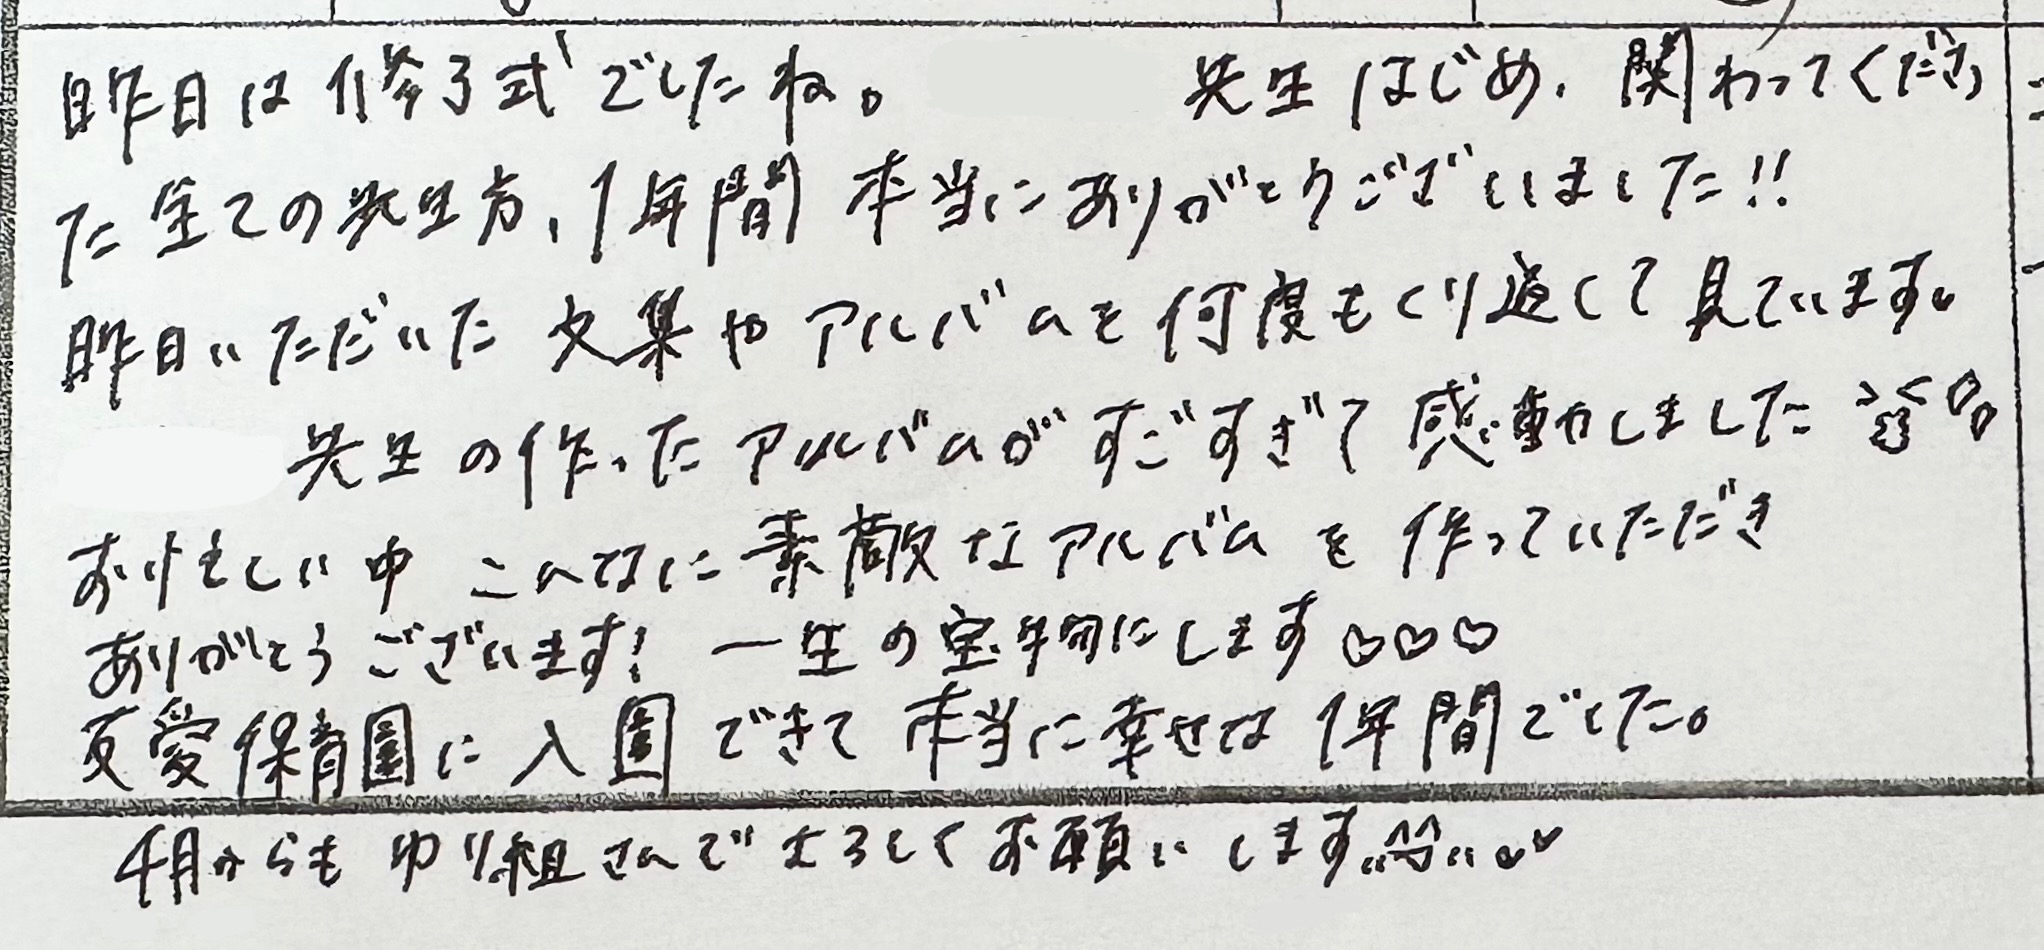 昨日は修了式でしたね。 先生はじめ、関わってくださっ
た全ての先生方、1年間本当にありがとうございました!!
昨日いただいた文集やアルバムを何度もくり返して見ています。
先生の作ったアルバムがすごすぎて感動しました
お忙しい中こんなに素敵なアルバムを作っていただき
ありがとうございます! 一生の宝物にします♡♡♡
友愛保育園に入園できて本当に幸せな1年間でした。
4月からもゆり組さんでよろしくお願いします